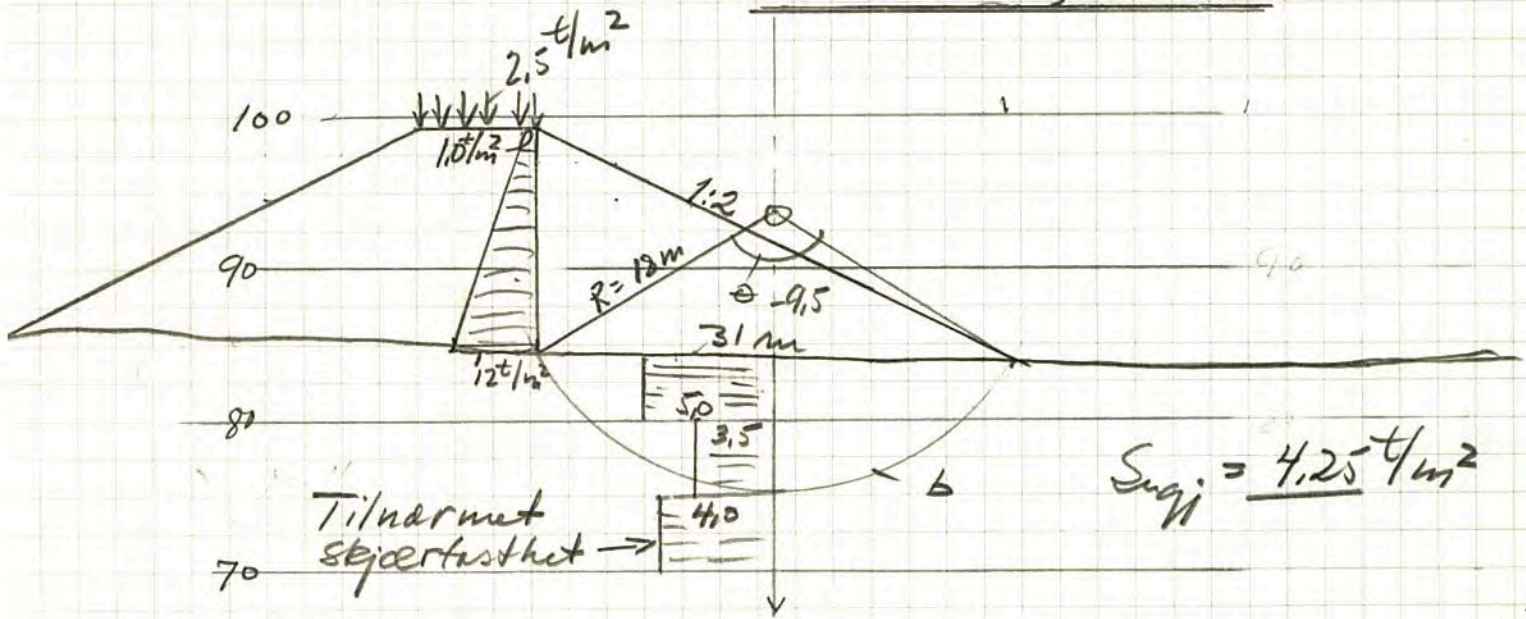 2,5 t/m²
100
1,0 t/m²
1:2
90
R = 18 m
θ -9,5
31 m
12 t/m²
5,0
80
3,5
b
Sugj = 4,25 t/m²
4,0
Tilnærmet
skjærfasthet →
70